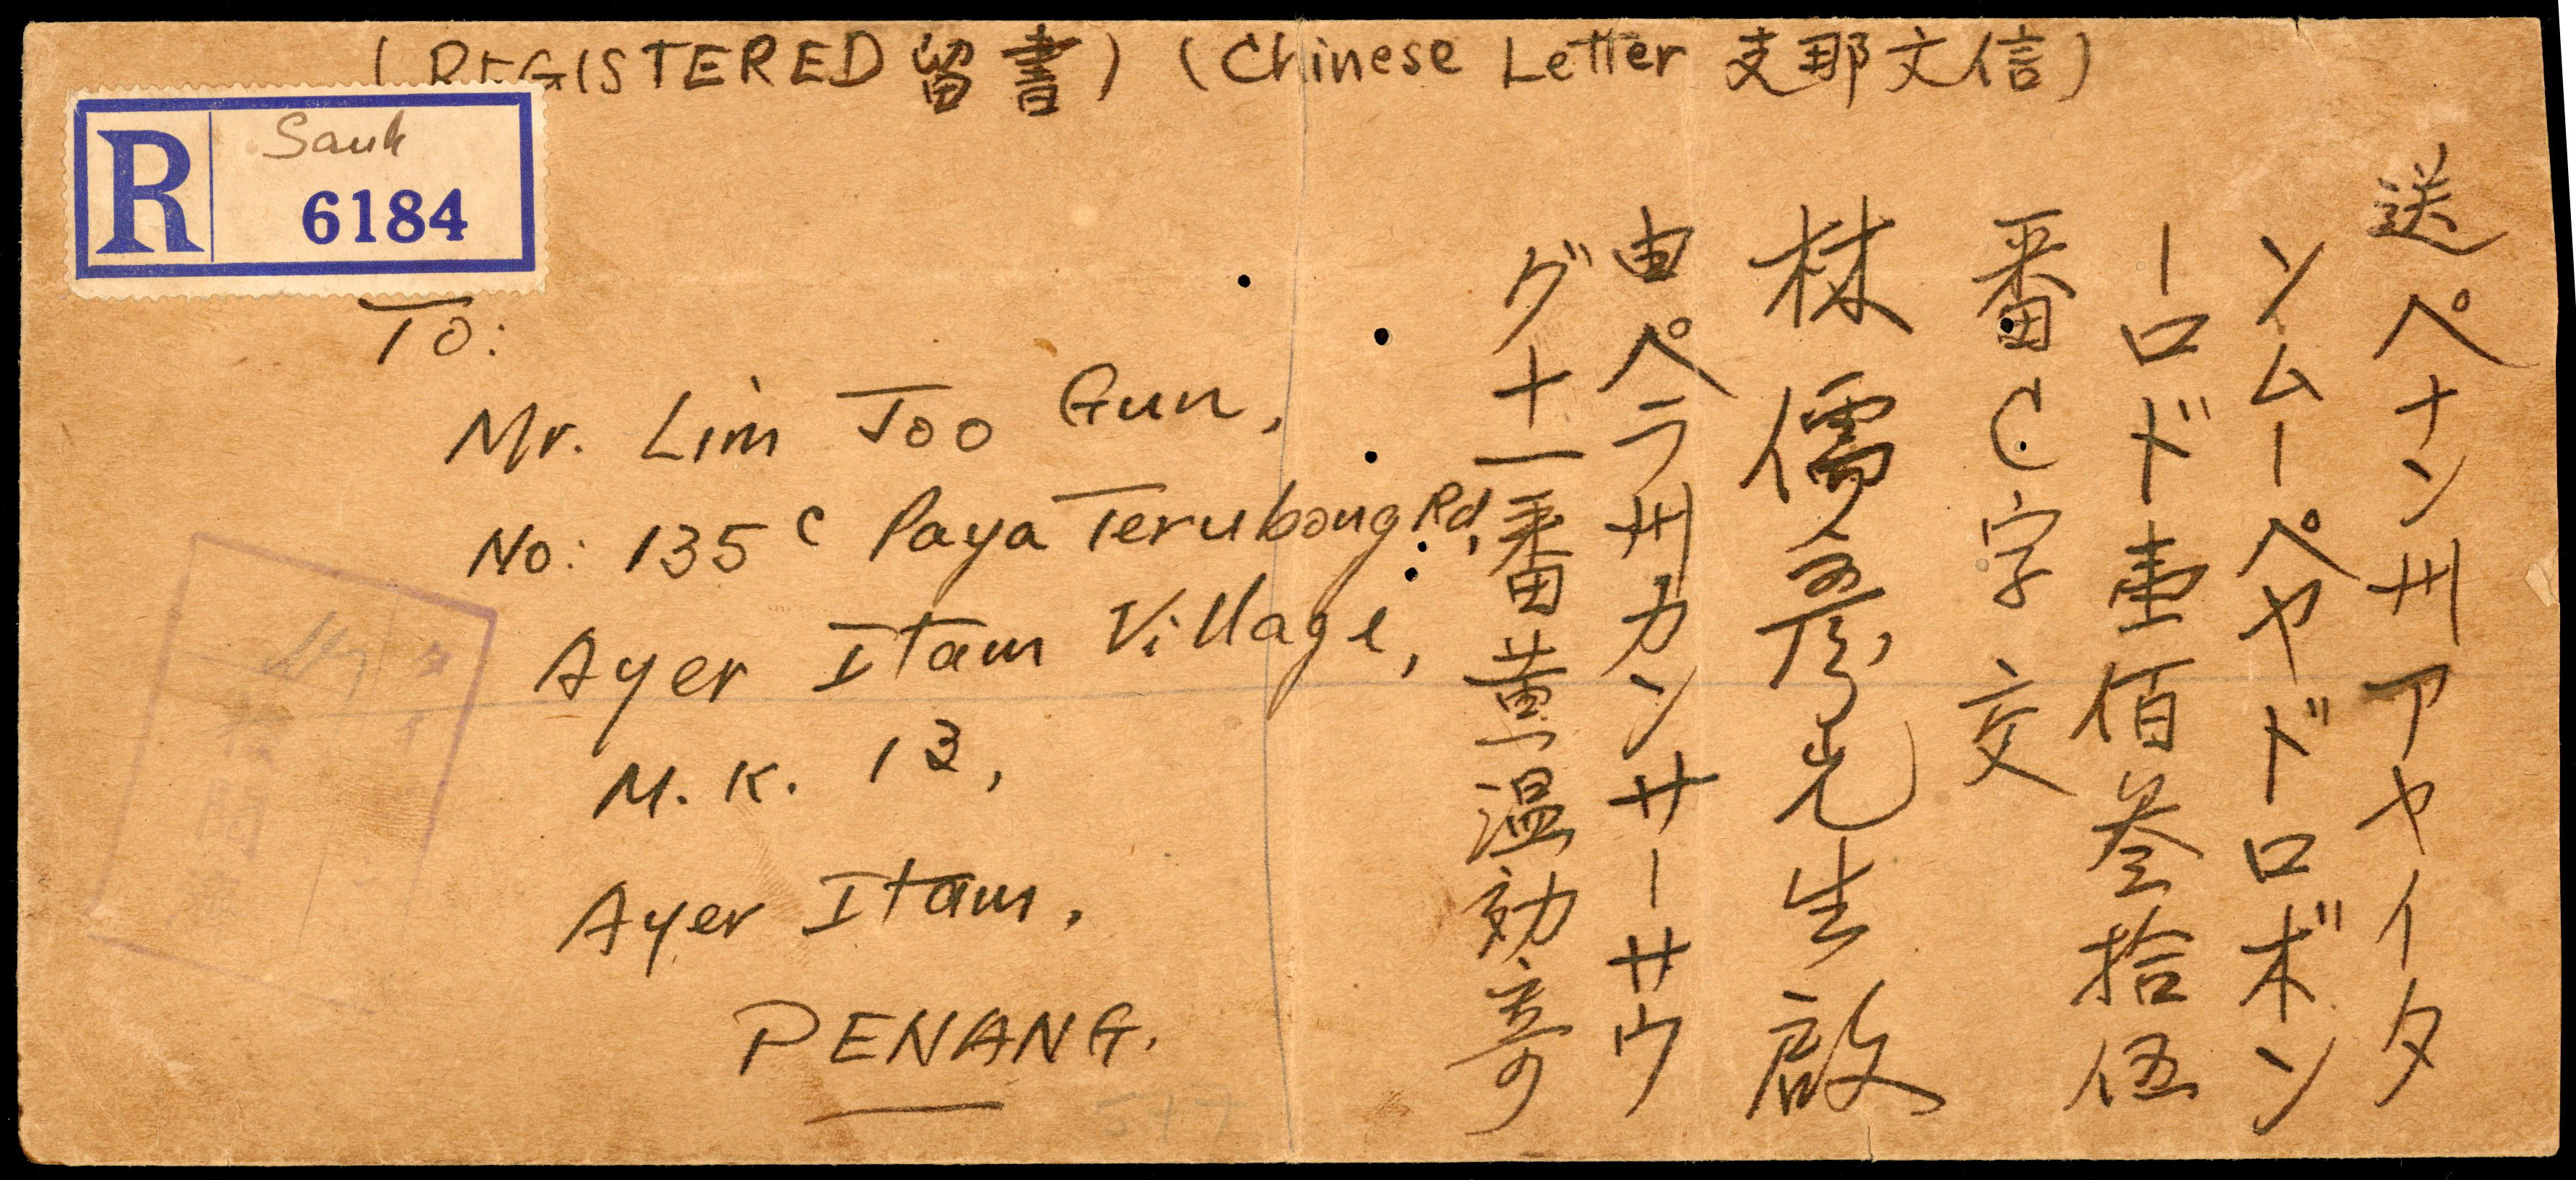 (REGISTERED 留書) (Chinese Letter 支那文信)
R
Sauk
6184
To:
Mr. Lim Joo Gun,
No: 135 C Paya Terubong Rd,
Ayer Itam Village,
M. K. 13,
Ayer Itam.
PENANG.
送ペナン州アヤイタ
ンムーペヤドロボン
ーロド壷佰叁拾伍
番C字交
林儒彦先生啟
由ペラ州カンサーサウ
グ十一番黄温効寄
577
タイ
検閲済